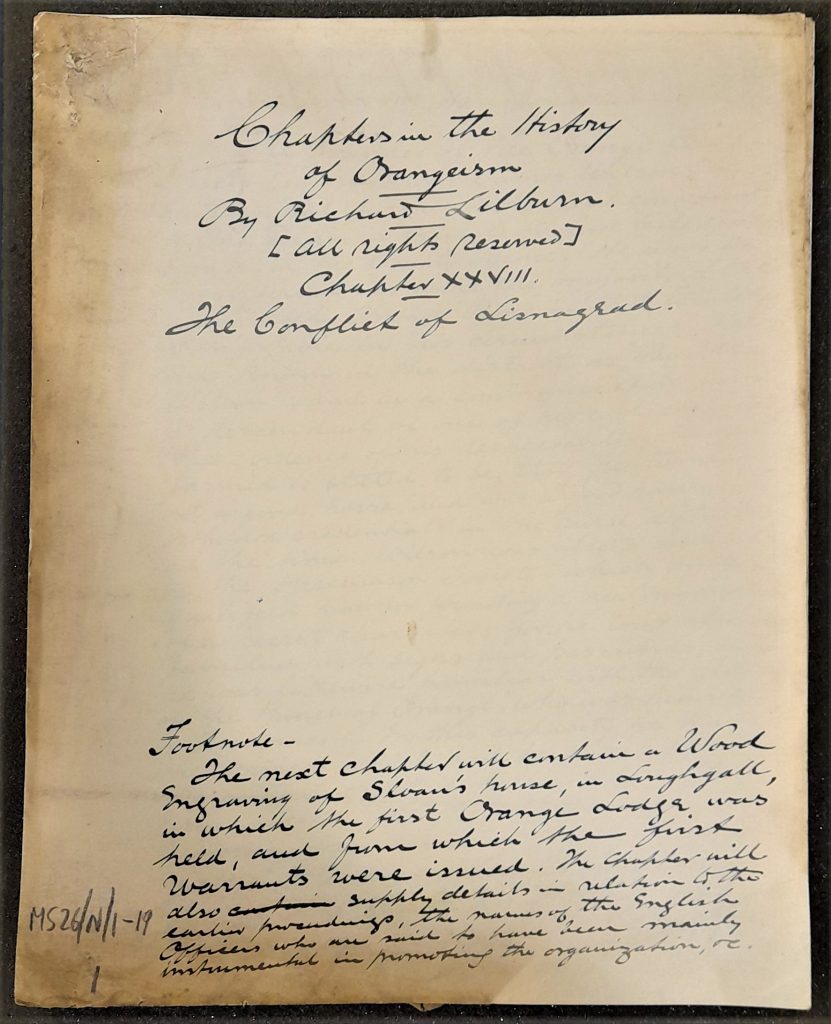 Chapters in the History
of Orangeism
By Richard Lilburn.
[All rights reserved]
Chapter XXVIII.
The Conflict of Lisnagrad.
Footnote -
The next chapter will contain a Wood
Engraving of Sloan's house, in Loughgall,
in which the first Orange Lodge was
held, and from which the first
Warrants were issued. The chapter will
also contain supply details in relation to the
earlier proceedings, the names of the English
Officers who are said to have been mainly
instrumental in promoting the organization, &c.
MS26/N/1-19
1